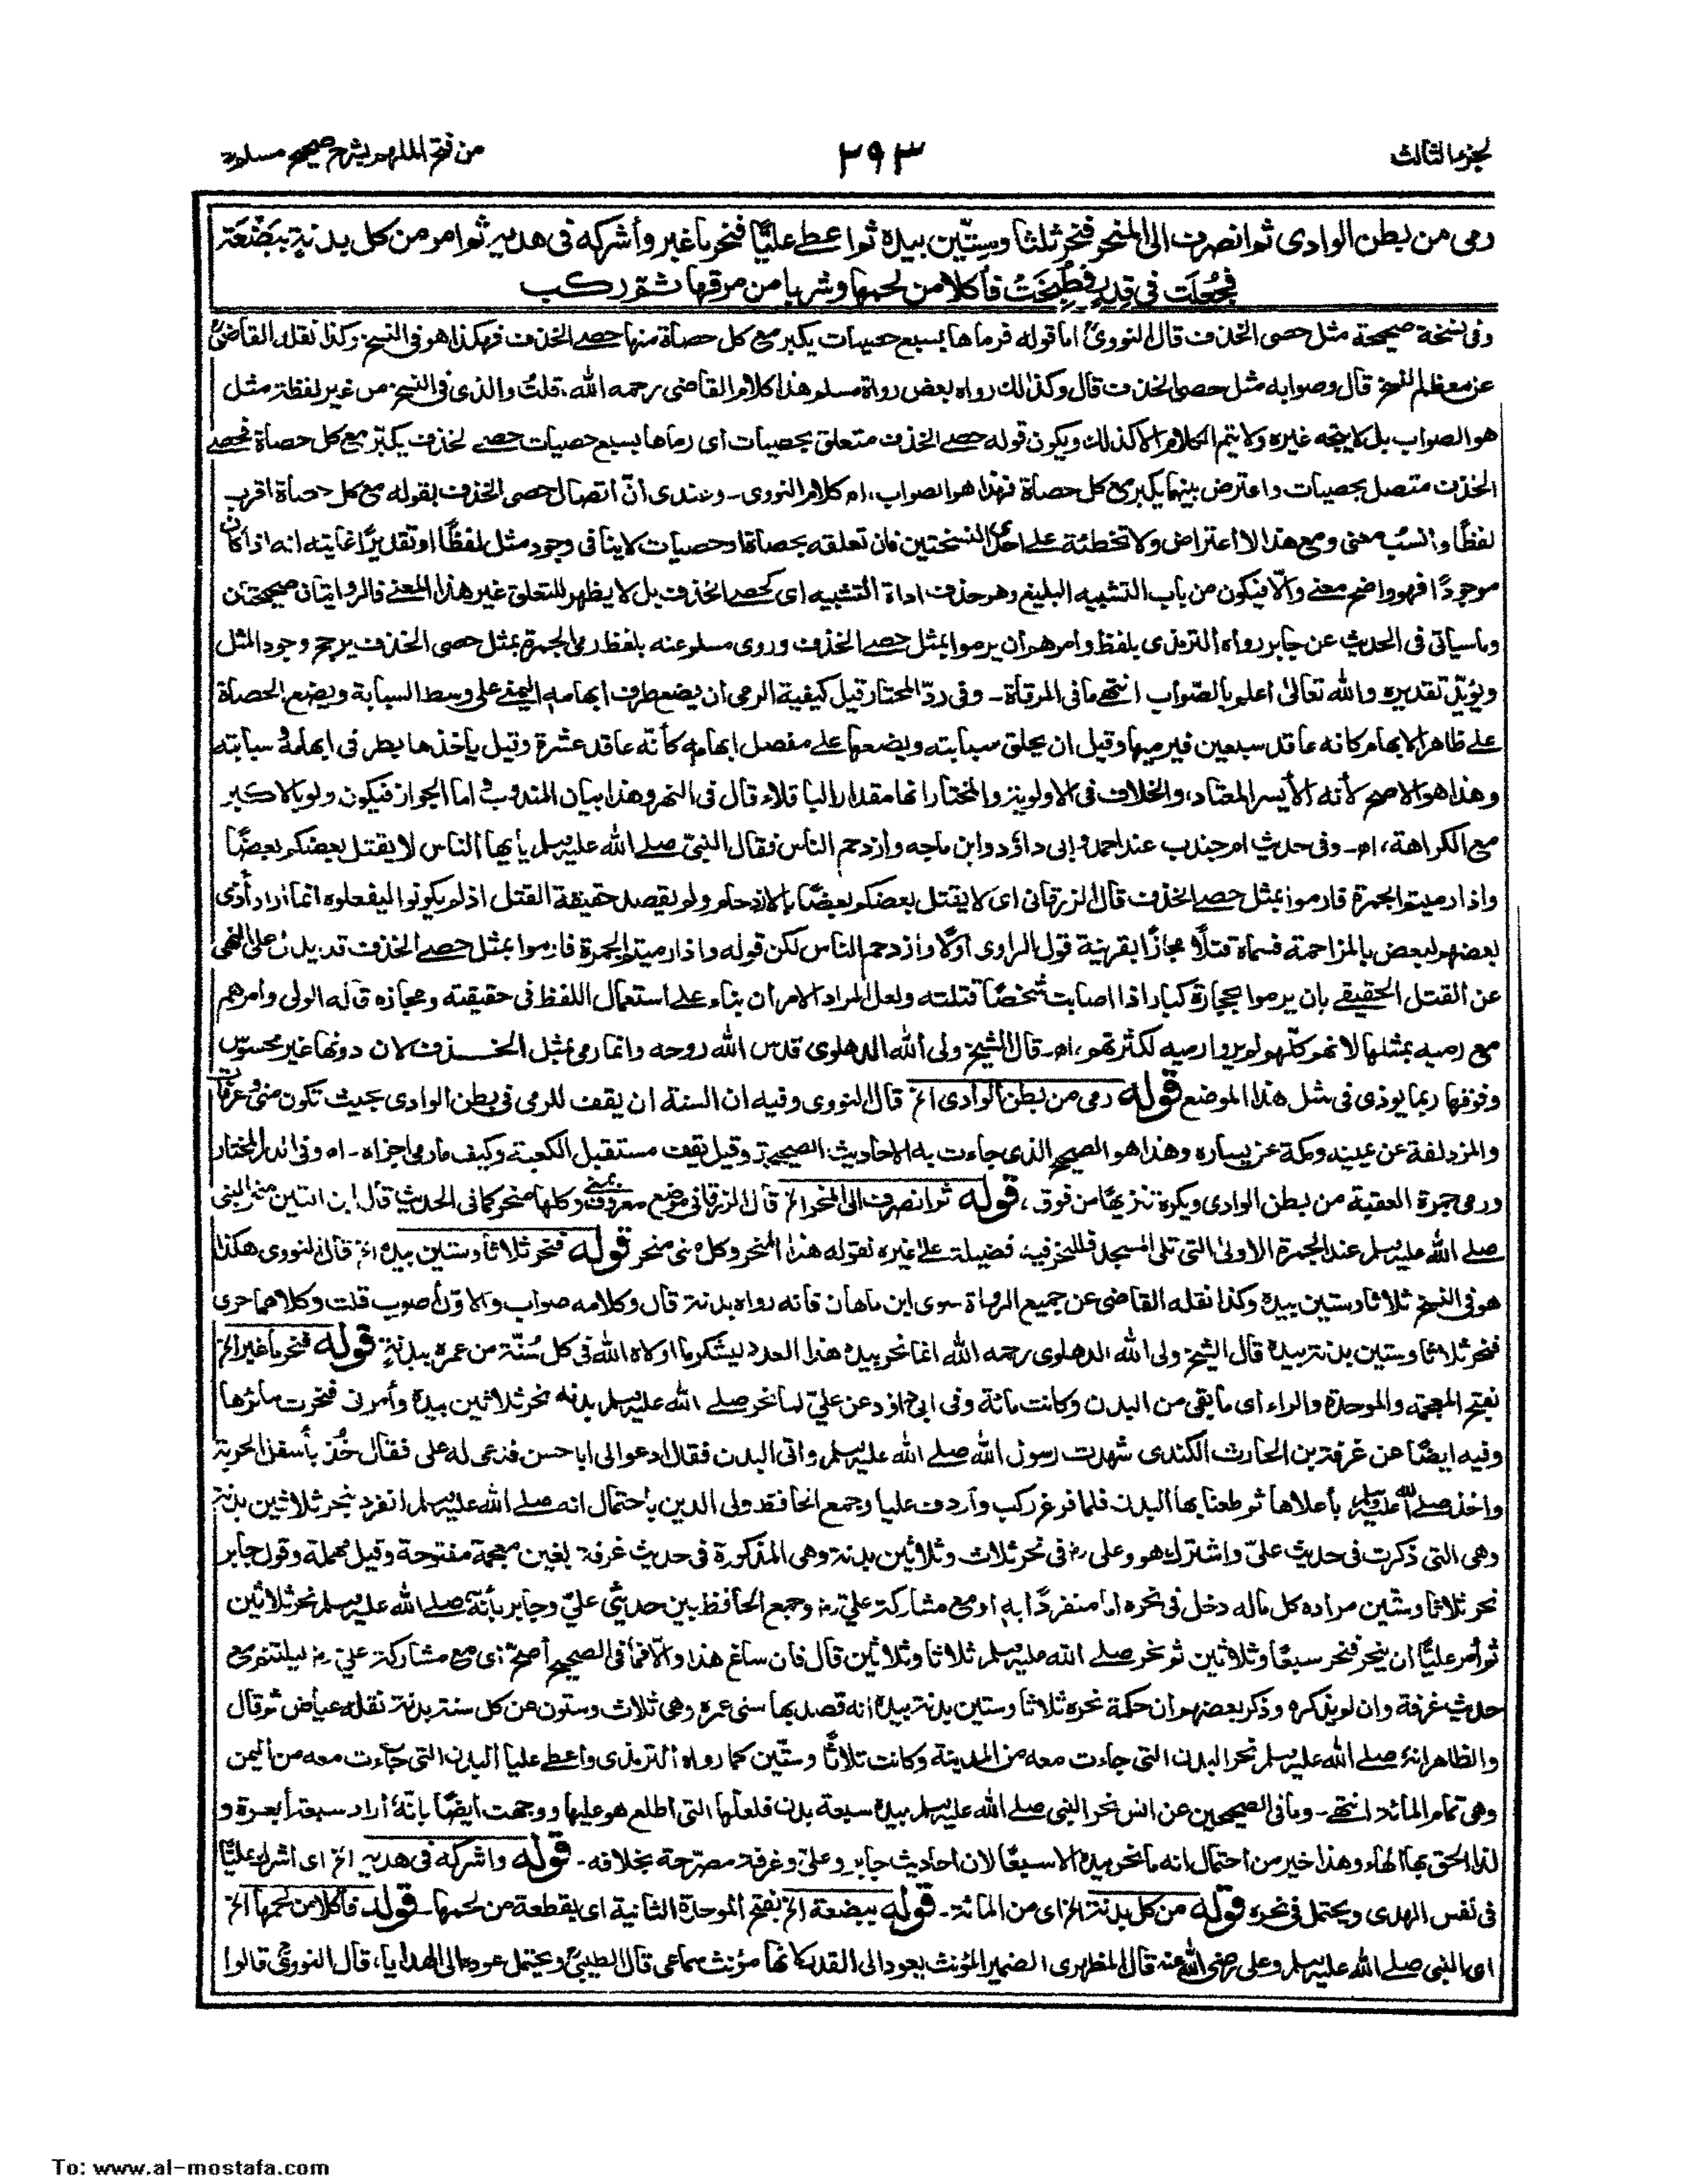 الجزء الثالث
٣٩٣
من فتح الملهم بشرح صحيح مسلم
رمى من بطن الوادى ثم انصرف الى المنحر فنحر ثلثا وستّين بيده ثم اعطے عليًّا فنحر ما غبر وأشركه فى هديه ثم امر من كل بدنةٍ ببَضْعَة
فجُعلَت فى قِدرٍ فطُبِخَتْ فأكلا من لحمها وشربا من مرقها ثم ركب
وفى نسخة صحيحة مثل حصى الخذف قال النووىؒ اما قوله فرماها بسبع حصيات يكبر مع كل حصاة منها حصے الخذف فهكذا هو فى النسخ وكذا نقله القاضىؒ
عن معظم النسخ قال وصوابه مثل حصى الخذف قال وكذلك رواه بعض رواة مسلم هذا كلام القاضى رحمه الله، قلتُ والذى فى النسخ من غير لفظة مثل
هو الصواب بل لا يتجه غيره ولا يتم الكلام الا كذلك ويكون قوله حصے الخذف متعلق بحصيات اى رماها بسبع حصيات حصے لخذف يكبّر مع كل حصاة فحصے
الخذف متصل بحصيات واعترض بينهما يكبر مع كل حصاة فهذا هو الصواب، اه كلام النووى ـ وعندى انّ اتصال حصى الخذف بقوله مع كل حصاة اقرب
لفظًا وانسب معنى ومع هذا لا اعتراض ولا تخطئة على احدى النسختين فان تعلقه بحصاة او حصيات لا ينافى وجود مثل لفظًا او تقديرًا غايته انه اذا كان
موجودًا فهو واضح معنى والّا فيكون من باب التشبيه البليغ وهو حذف اداة التشبيه اى كحصے الخذف بل لا يظهر للتعلق غير هذا المعنے فالروايتان صحيحتان
وما سيأتى فى الحديث عن جابر رواه الترمذى بلفظ وامرهم ان يرموا بمثل حصے الخذف وروى مسلم عنه بلفظ رمى الجمرة بمثل حصى الخذف يرجح وجود المثل
ويؤيّد تقديره والله تعالىٰ اعلم بالصّواب انتهے ما فى المرقاة ـ وفى ردّ المحتار قيل كيفية الرمى ان يضع طرف ابهامه اليمنے على وسط السبابة ويضع الحصاة
علے ظاهر الابهام كانه عاقد سبعين فيرميها وقيل ان يحلق سبابته ويضعها علے مفصل ابهامه كأنّه عاقد عشرة وقيل يأخذها بطرفى ابهامه وسبابته
وهذا هو الاصح لأنه الأيسر المعتاد، والخلاف فى الاولوية والمختار انها مقدار الباقلاء قال فى النهر وهذا بيان المندوب اما الجواز فيكون ولو بالاكبر
مع الكراهة، اه ـ وفى حديث ام جندب عند احمد وابى داؤد وابن ماجه وازدحم الناس فقال النبىّ صلے الله عليه وسلم يأيها الناس لا يقتل بعضكم بعضًا
واذا رميتم الجمرة فارموا بمثل حصے الخذف قال الزرقانى اى لا يقتل بعضكم بعضًا بالازدحام ولم يقصد حقيقة القتل اذ لم يكونوا ليفعلوه انما اراد أذى
بعضهم لبعض بالمزاحمة فسماه قتلًا مجازًا بقرينة قول الراوى اوّلًا وازدحم الناس لكن قوله واذا رميتم الجمرة فارموا بمثل حصے الخذف قد يدل على النهى
عن القتل الحقيقے بان يرموا بحجارة كبار اذا اصابت شخصًا قتلته ولعل المراد الامران بناء علے استعمال اللفظ فى حقيقته ومجازه قاله الولى وامرهم
مع رميه بمثلها لانهم كلّهم لم يروا رميه لكثرتهم، اه ـ قال الشيخ ولى الله الدهلوى قدس الله روحه وانما رمى بمثل الخذف لان دونها غير محسوس
وفوقها ربما يوذى فى مثل هذا الموضع قوله رمى من بطن الوادى الخ قال النووى وفيه ان السنة ان يقف للرمى فى بطن الوادى بحيث تكون منى وعرفات
والمزدلفة عن يمينه ومكة عن يساره وهذا هو الصحيح الذى جاءت به الاحاديث الصحيحة وقيل يقف مستقبل الكعبة وكيف ما رمى اجزاه ـ اه وفى الدر المختار
ورمى جمرة العقبة من بطن الوادى ويكره تنزيهًا من فوق، قوله ثم انصرف الى المنحر الخ قال الزرقانى موضع معروف بمنى وكلها منحر كما فى الحديث قال ابن التين منحر النبى
صلے الله عليه وسلم عند الجمرة الاولىٰ التى تلى المسجد فللنحر فيه فضيلة علے غيره لقوله هذا المنحر وكل منى منحر قوله فنحر ثلاثا وستين بيده الخ قال النووى هكذا
هو فى النسخ ثلاثا وستين بيده وكذا نقله القاضى عن جميع الرواة سوى ابن ماهان فانه رواه بدنة قال وكلامه صواب والاوّل أصوب قلت وكلاهما حرى
فنحر ثلاثا وستين بدنة بيده قال الشيخ ولى الله الدهلوى رحمه الله انما نحر بيده هذا العدد ليشكر ما اولاه الله فى كل سَنّة من عمره ببدنةٍ قوله فنحر ما غبر الخ
بفتح المعجمة والموحدة والراء اى ما بقى من البدن وكانت مائة وفى ابى داؤد عن علىّ لما نحر صلے الله عليه وسلم بدنه نحر ثلاثين بيده وأمرنى فنحرت سائرها
وفيه ايضًا عن غرفة بن الحارث الكندى شهدت رسول الله صلے الله عليه وسلم واتى البدن فقال ادعوا لى ابا حسن فدعى له على فقال خُذ بأسفل الحربة
واخذ صلے الله عليه وسلم بأعلاها ثم طعنا بها البدن فلما فرغ ركب وأردف عليا وجمع الحافظ ولى الدين باحتمال انه صلے الله عليه وسلم انفرد بنحر ثلاثين بدنة
وهى التى ذكرت فى حديث علىّ واشترك هو وعلى رض فى نحر ثلاث وثلاثين بدنة وهى المذكورة فى حديث غرفة بغين معجمة مفتوحة وقيل مهملة وقول جابر
نحر ثلاثا وستّين مراده كل ماله دخل فى نحره اما منفردًا به او مع مشاركة علىّ رض وجمع الحافظ بين حديثى علىّ وجابر بأنّه صلے الله عليه وسلم نحر ثلاثين
ثم أمر عليًّا ان ينحر فنحر سبعًا وثلاثين ثم نحر صلے الله عليه وسلم ثلاثا وثلاثين قال فان ساغ هذا والّا فما فى الصحيح أصحّ اى مع مشاركة علىّ رض ليلتئم مع
حديث غرفة وان لم يذكره وذكر بعضهم ان حكمة نحره ثلاثا وستين بدنة بيده انه قصد بها سنى عمره وهى ثلاث وستون عن كل سنة بدنة نقله عياض ثم قال
والظاهر انه صلے الله عليه وسلم نحر البدن التى جاءت معه من المدينة وكانت ثلاثًا وستّين كما رواه الترمذى واعطے عليا البدن التى جاءت معه من اليمن
وهى تمام المائة انتهے ـ وما فى الصحيحين عن انس نحر النبى صلے الله عليه وسلم بيده سبعة بدن فلعلّها التى اطلع هو عليها ووجهت ايضًا بانّه أراد سبعة أبعرة و
لذا الحق بها الهاء وهذا خير من احتمال انه ما نحر بيده الا سبعًا لان احاديث جابر وعلىّ وغرفة مصرّحة بخلافه ـ قوله واشركه فى هديه الخ اى اشرك عليًّا
فى نفس الهدى ويحتمل فى نحره قوله من كل بدنة الخ اى من المائة ـ قوله ببضعة الخ بفتح الموحدة الثانية اى بقطعة من لحمها ـ قوله فأكلا من لحمها الخ
اى النبى صلے الله عليه وسلم وعلى رضى الله عنه قال المظهرى الضمير المؤنث يعود الى القدر لانها مؤنث سماعى قال الطيبىؒ ويحتمل عوده الى الهدايا، قال النووىؒ قالوا
To: www.al-mostafa.com